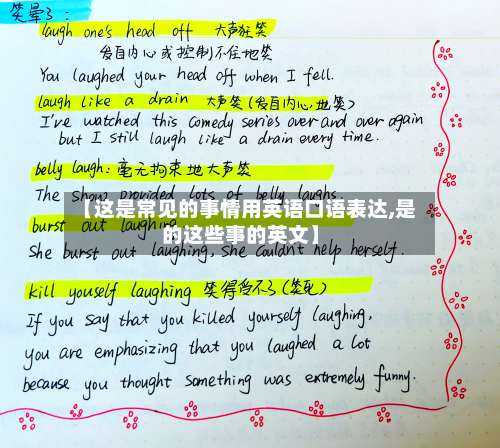 笑晕了:
laugh one's head off 大声狂笑
发自内心或控制不住地笑
You laughed your head off when I fell.
laugh like a drain 大声笑(发自内心地笑)
I've watched this comedy series over and over again
but I still laugh like a drain every time.
belly laugh: 毫无拘束地大声笑
The show provided lots of belly laughs.
【这是常见的事情用英语口语表达,是
burst out laughing
的这些事的英文】
She burst out laughing, she couldn't help herself.
kill youself laughing 笑得受不了(笑死)
If you say that you killed yourself laughing,
you are emphasizing that you laughed a lot
because you thought something was extremely funny.